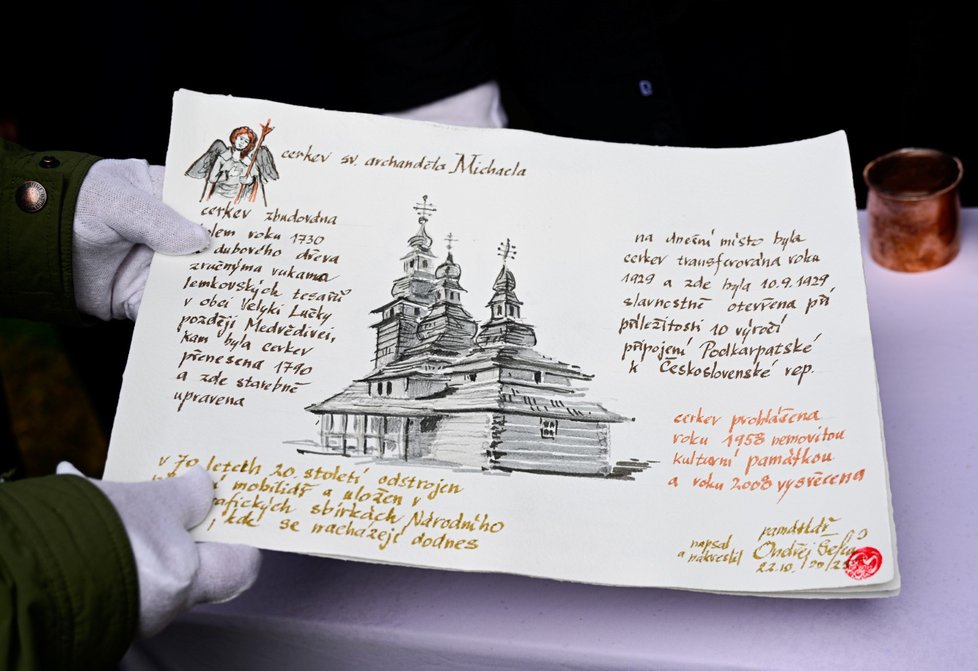 cerkev sv. archanděla Michaela
cerkev zbudována
kolem roku 1730
dubového dřeva
zručnýma rukama
lemkovských tesařů
v obci Velyki Lučky
později Medvědivci,
kam byla cerkev
přenesena 1790
a zde stavebně
upravena
na dnešní místo byla
cerkev transferována roku
1929 a zde byla 10.9.1929
slavnostně otevřena při
příležitosti 10 výročí
připojení Podkarpatské
k Československé rep.
cerkev prohlášena
roku 1958 nemovitou
kulturní památkou
a roku 2008 vysvěcena
v 70 letech 20. století odstrojen
mobiliář a uložen v
sbírkách Národního
kde se nacházejí dodnes
památkář
napsal
a nakreslil
Ondřej
22.10.